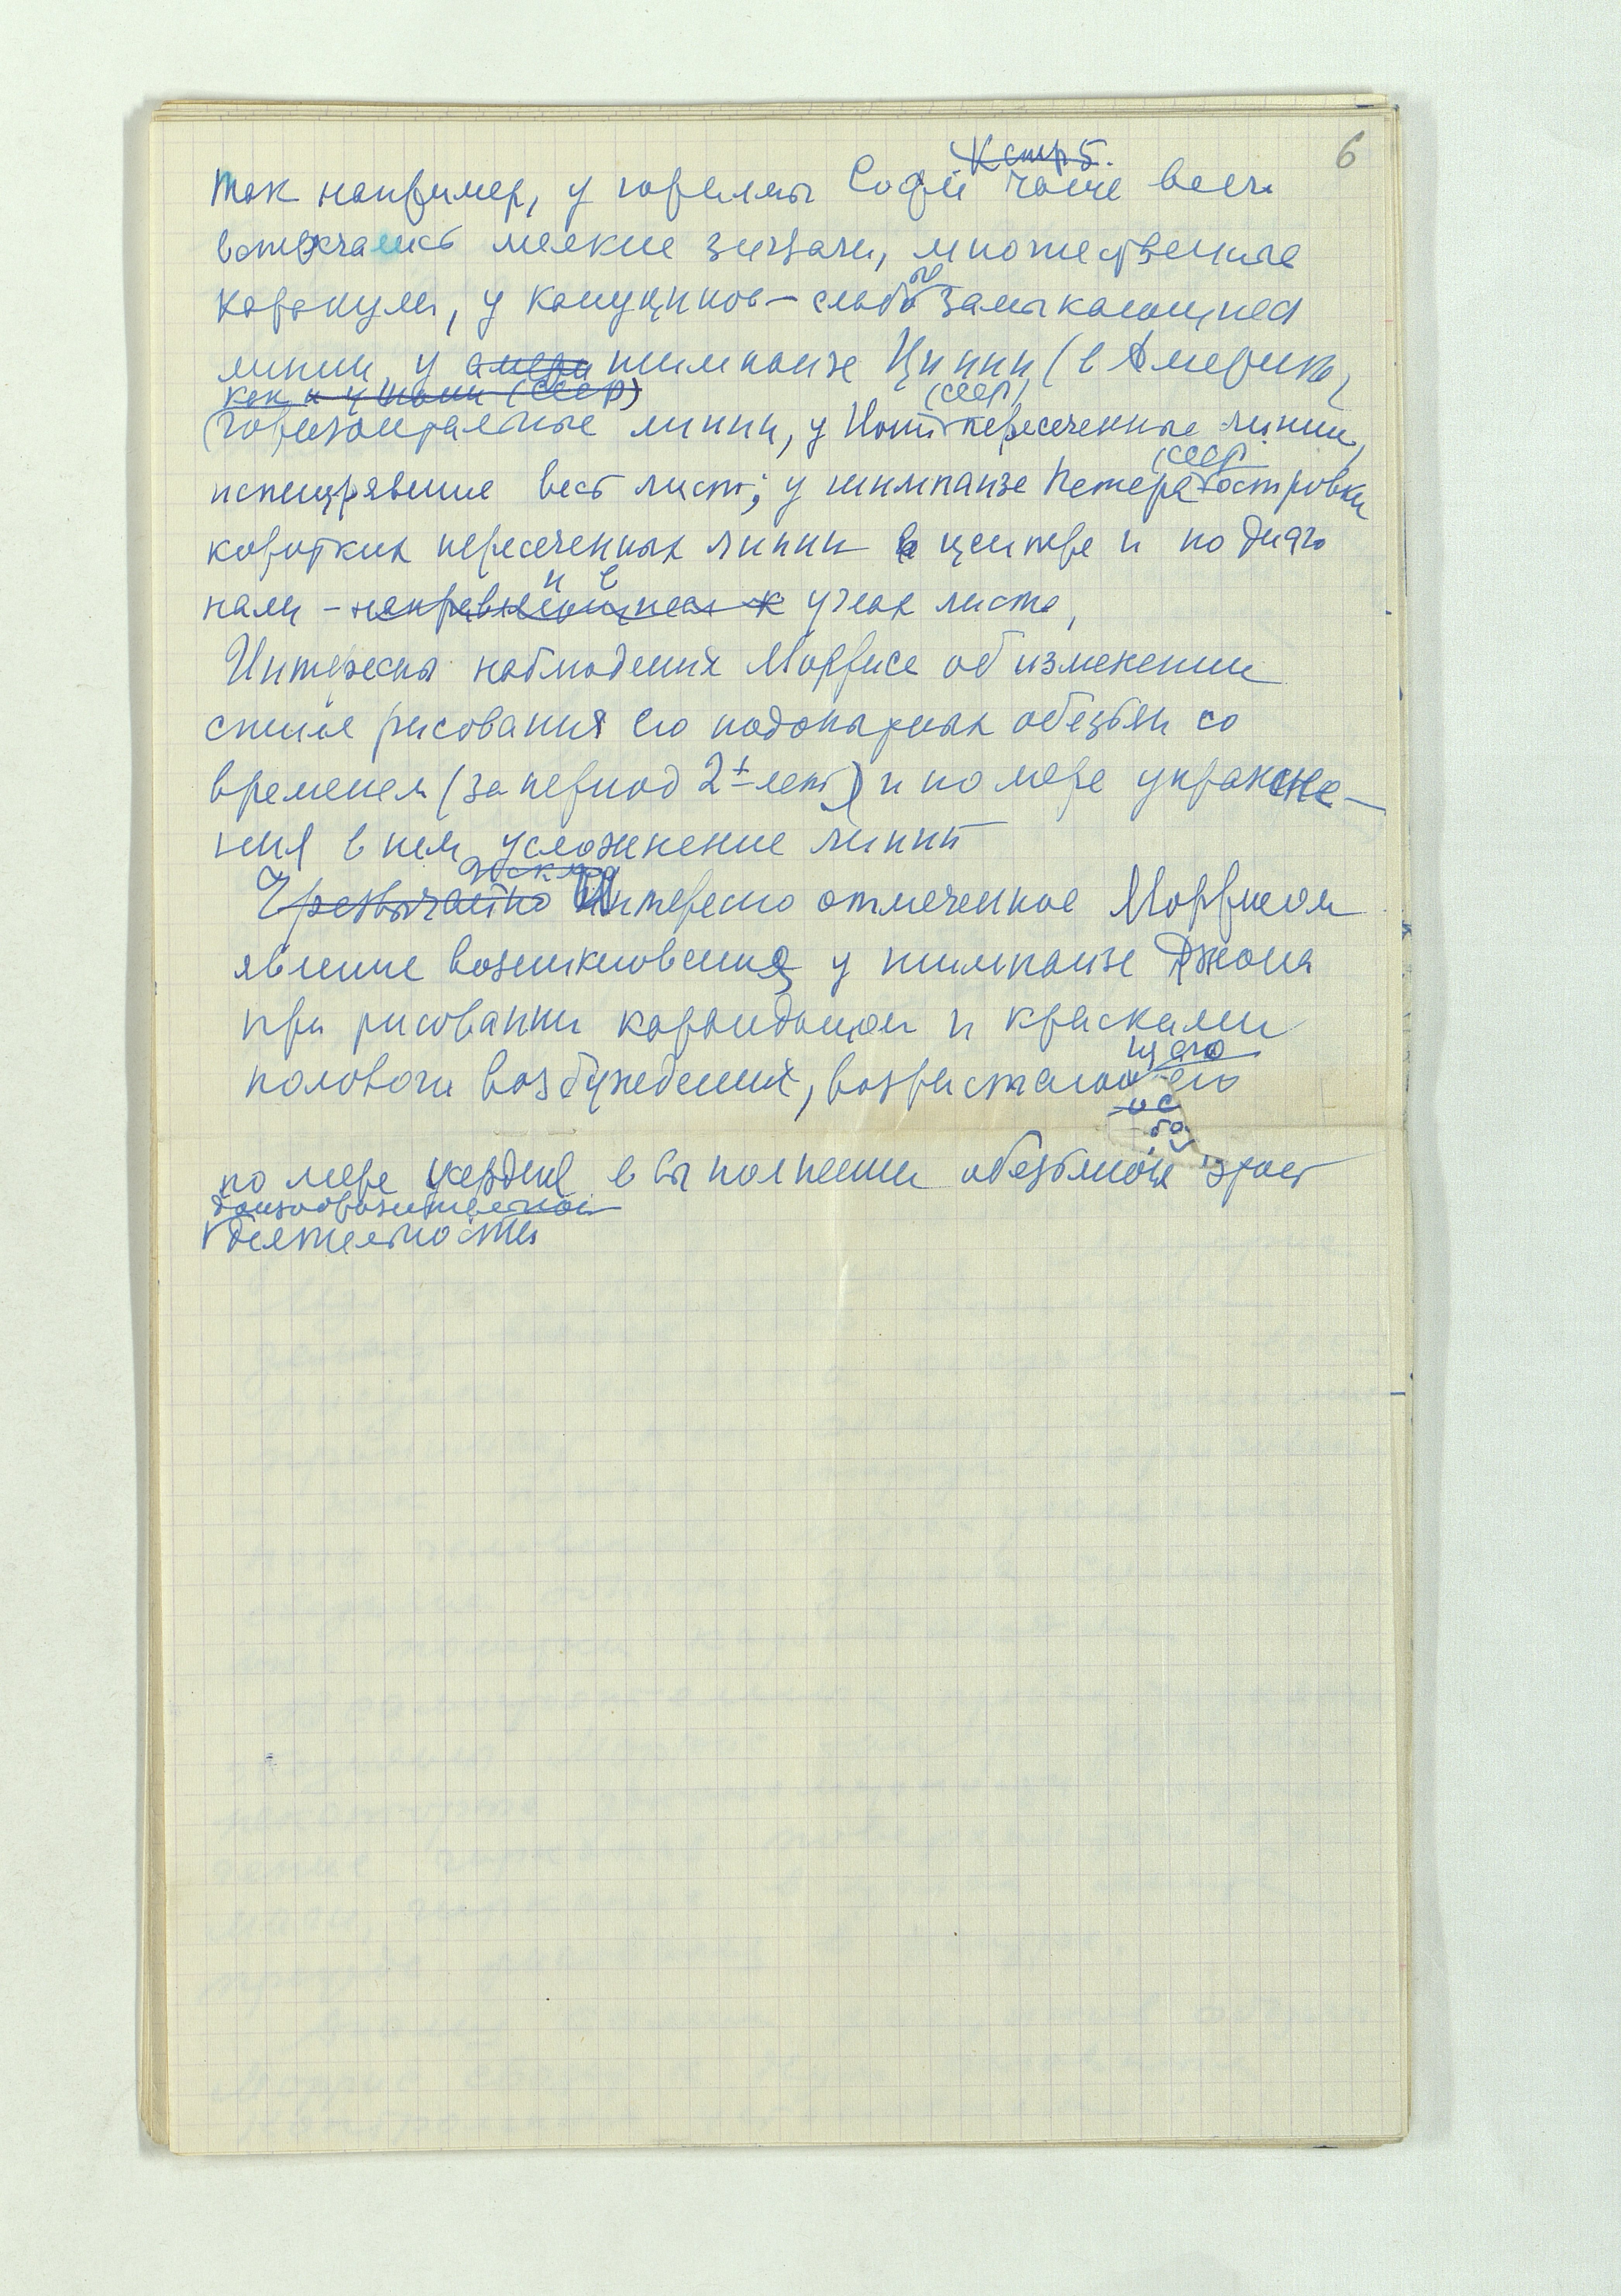 6
К стр 5.
Так например, у гориллы Софи чаще всего
встречались мелкие зигзаги, множественные
каракули, у капуцинов – слабо замыкающиеся
линии, у амери шимпанзе Циппи (в Америке,
как и у Иони (СССР)
(горизонтальные линии, у Иони (СССР) пересеченные линии,
испещрявшие весь лист; у шимпанзе Петера (СССР) островки
коротких пересеченных линий в центре и по диаго
нали – углах листа,
Интересны наблюдения Морриса об изменении
стиля рисования его подопытных обезьян со
временем (за период 2х лет) и по мере упражне-
ния в нем усложнение линий
Чрезвычайно Интересно отмеченное Моррисом
явление возникновения у шимпанзе Джона
при рисовании карандашом и красками
полового возбуждения, возрастающего
по мере усердия в выполнении обезьяной этой
изобразительной
деятельности